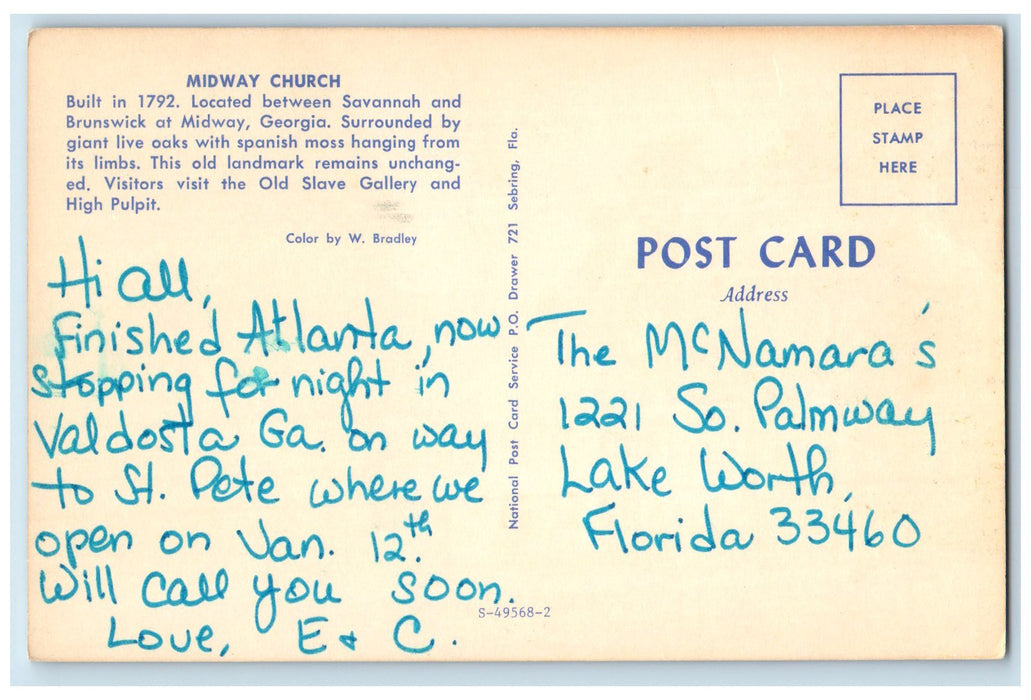 MIDWAY CHURCH
Built in 1792. Located between Savannah and
Brunswick at Midway, Georgia. Surrounded by
giant live oaks with spanish moss hanging from
its limbs. This old landmark remains unchang-
ed. Visitors visit the Old Slave Gallery and
High Pulpit.
Color by W. Bradley
Hi all,
Finished Atlanta, now
stopping for night in
Valdosta Ga. on way
to St. Pete where we
open on Jan. 12th.
Will call you soon.
Love, E & C.
S-49568-2
National Post Card Service P.O. Drawer 721 Sebring, Fla.
PLACE
STAMP
HERE
POST CARD
Address
The McNamara's
1221 So. Palmway
Lake Worth,
Florida 33460